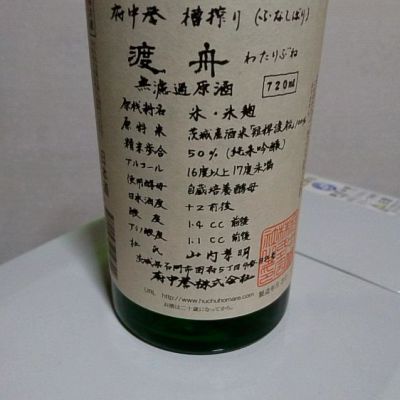 府中誉 槽搾り (ふなしぼり)
渡舟 わたりぶね
無濾過原酒 720ml
原材料名 米・米麹
原料米 茨城産酒米「短稈渡船」100%
精米歩合 50% (純米吟醸)
アルコール 16度以上17度未満
使用酵母 自蔵培養酵母
日本酒度 +2前後
酸度 1.4cc前後
アミノ酸度 1.1cc前後
杜氏 山内孝明
茨城県石岡市国府5丁目
府中誉株式会社
URL http://www.huchuhomare.com
お酒は二十歳になってから。
製造年月